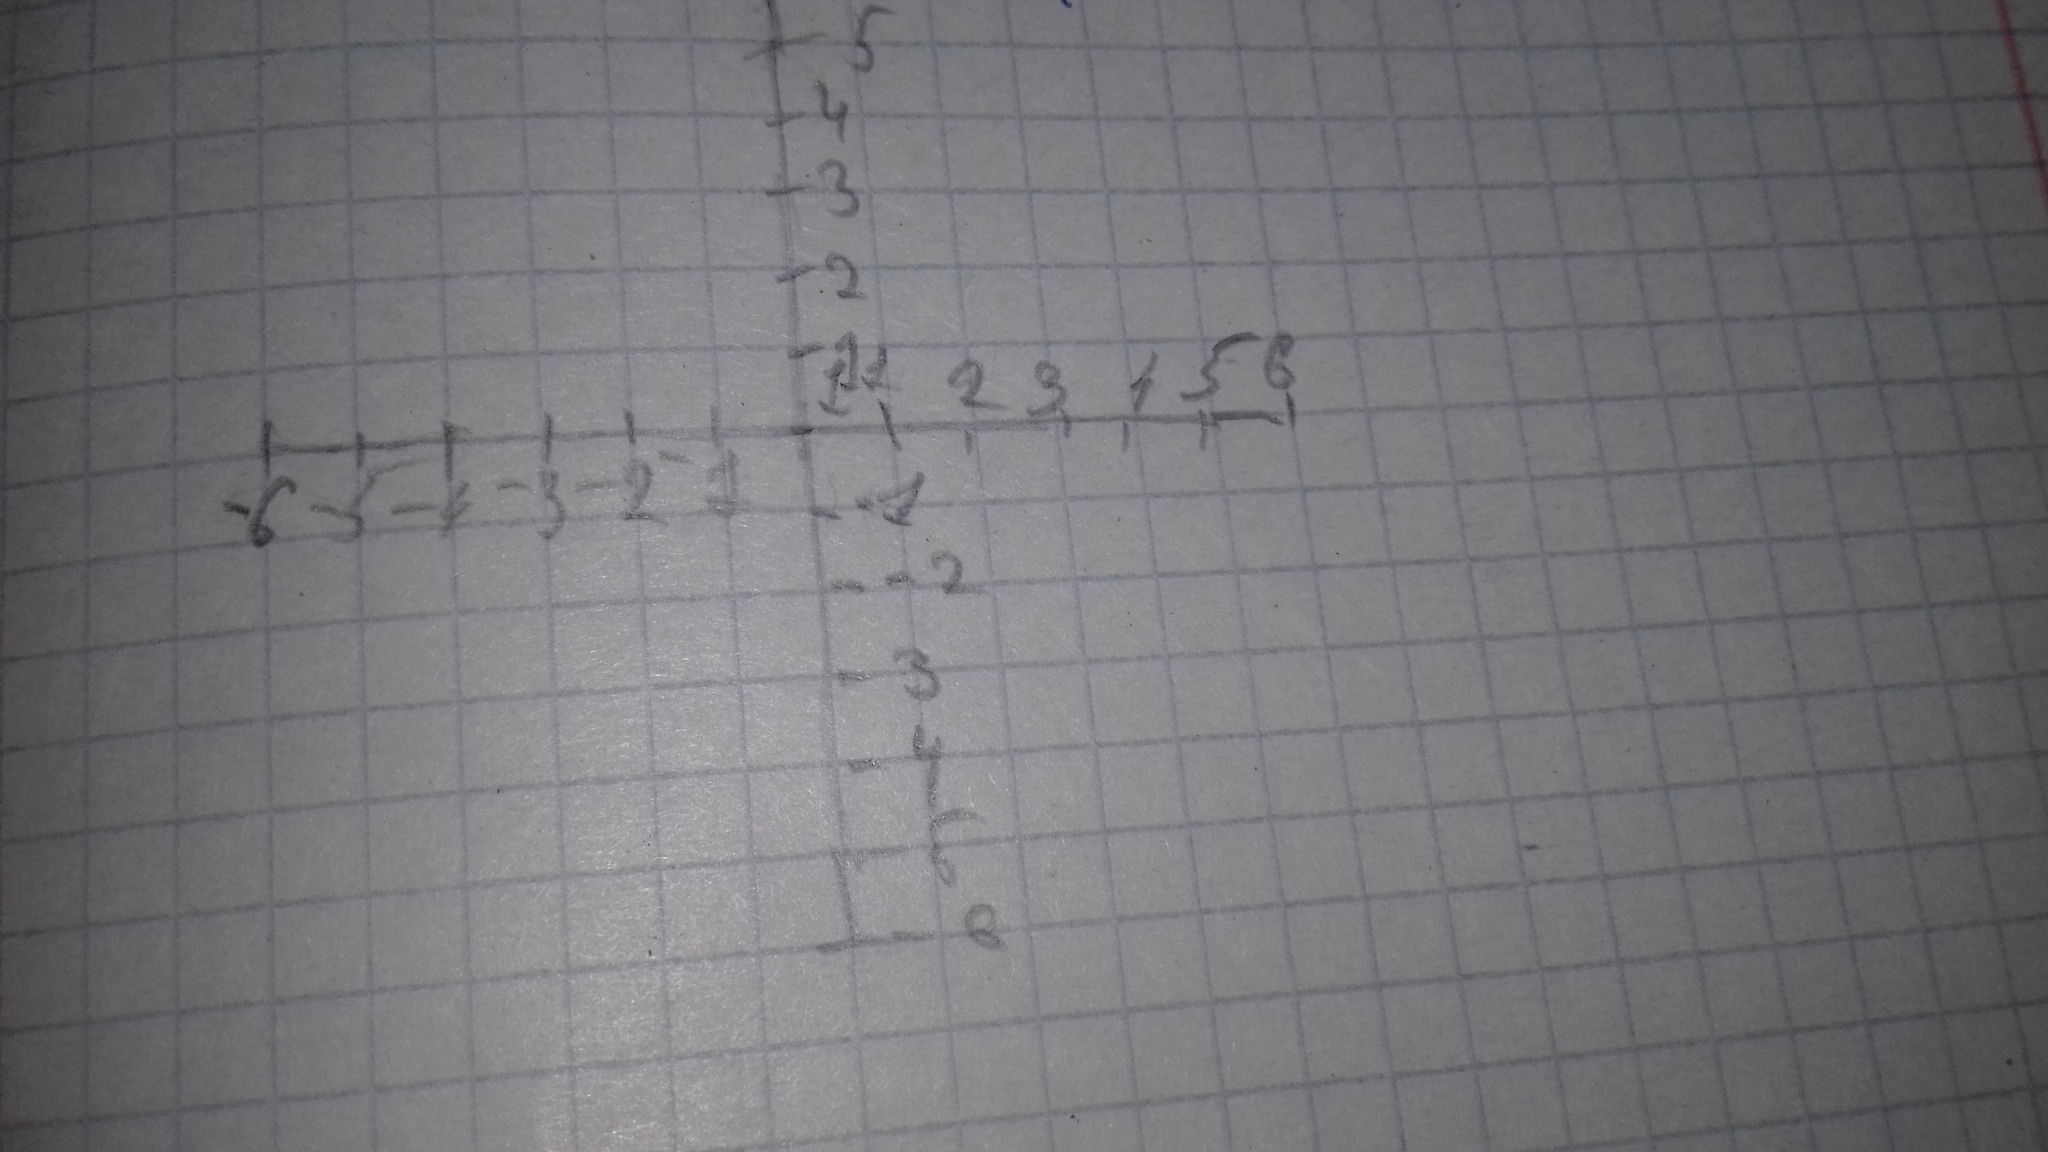 5
4
3
2
1
1 1 2 3 4 5 6
-6 -5 -4 -3 -2 -1
-1
-2
3
4
5
6